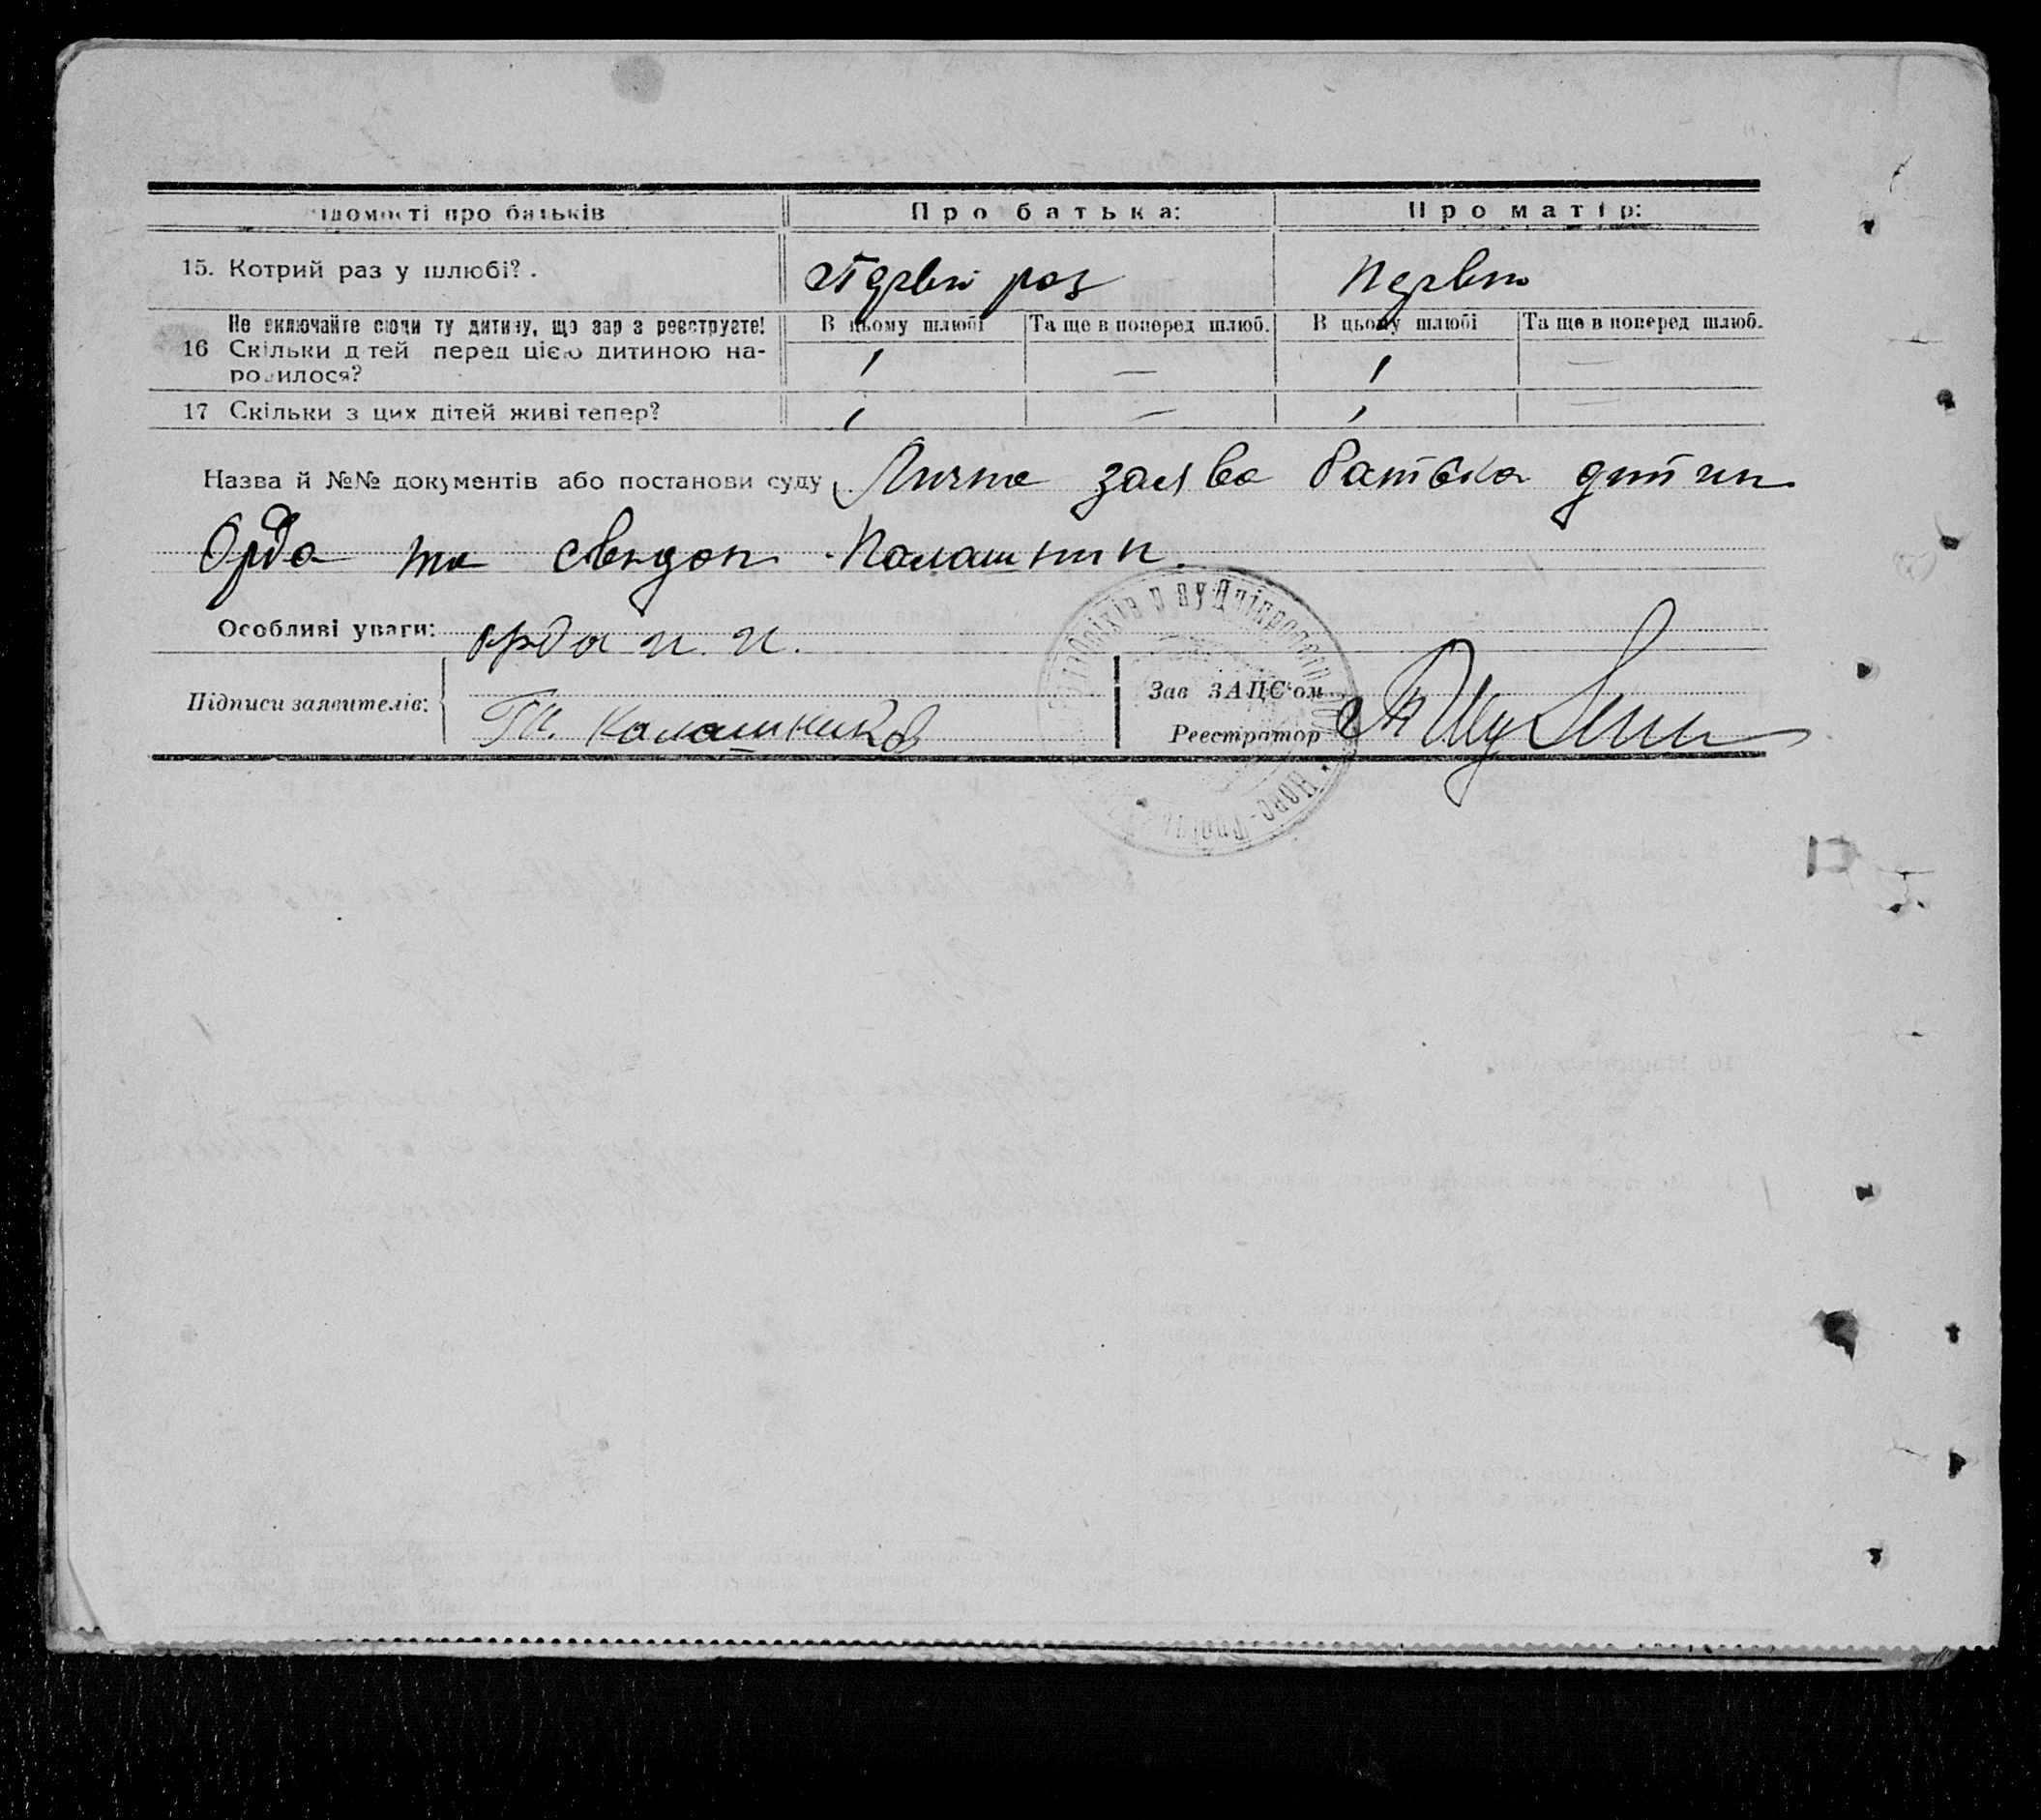 ідомості про батьків Про батька: Про матір:
15. Котрий раз у шлюбі? . Первий раз Первий
Не включайте сюди ту дитину, що зар з реєструєте! В цьому шлюбі Та ще в поперед шлюб. В цьому шлюбі Та ще в поперед шлюб.
16 Скільки д тей перед цією дитиною на- 1 — 1 —
родилося?
17 Скільки з цих дітей живі тепер? 1 — 1 —
Назва й №№ документів або постанови суду Лична заява батька дитин
Орда та свидок
Особливі уваги: Орда
Підписи заявителів: Калашников
Зав ЗАЦС'ом
Реєстратор